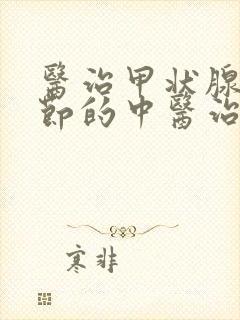 醫治甲状腺
節的中醫治
寒非